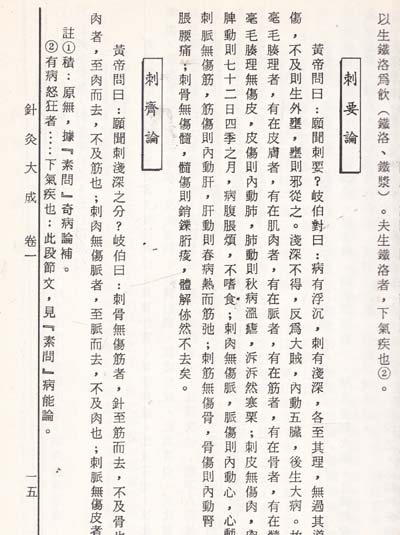 以生鐵洛爲飲（鐵洛、鐵漿）。夫生鐵洛者，下氣疾也②。
刺要論
黃帝問曰：願聞刺要？岐伯對曰：病有浮沉，刺有淺深，各至其理，無過其道
傷，不及則生外壅，壅則邪從之。淺深不得，反爲大賊，內動五臟，後生大病。故
毫毛腠理者，有在皮膚者，有在肌肉者，有在脈者，有在筋者，有在骨者，有在髓
毫毛腠理無傷皮，皮傷則內動肺，肺動則秋病溫瘧，泝泝然寒栗；刺皮無傷肉，
脾動則七十二日四季之月，病腹脹煩，不嗜食；刺肉無傷脈，脈傷則內動心，心動
刺脈無傷筋，筋傷則內動肝，肝動則春病熱而筋弛；刺筋無傷骨，骨傷則內動腎
脹腰痛；刺骨無傷髓，髓傷則銷鑠胻痠，體解㑊然不去矣。
刺齊論
黃帝問曰：願聞刺淺深之分？岐伯曰：刺骨無傷筋者，針至筋而去，不及骨也
肉者，至肉而去，不及筋也；刺肉無傷脈者，至脈而去，不及肉也；刺脈無傷皮者
註①積：原無，據『素問』奇病論補。
②有病怒狂者……下氣疾也：此段節文，見『素問』病能論。
針灸大成 卷一
一五